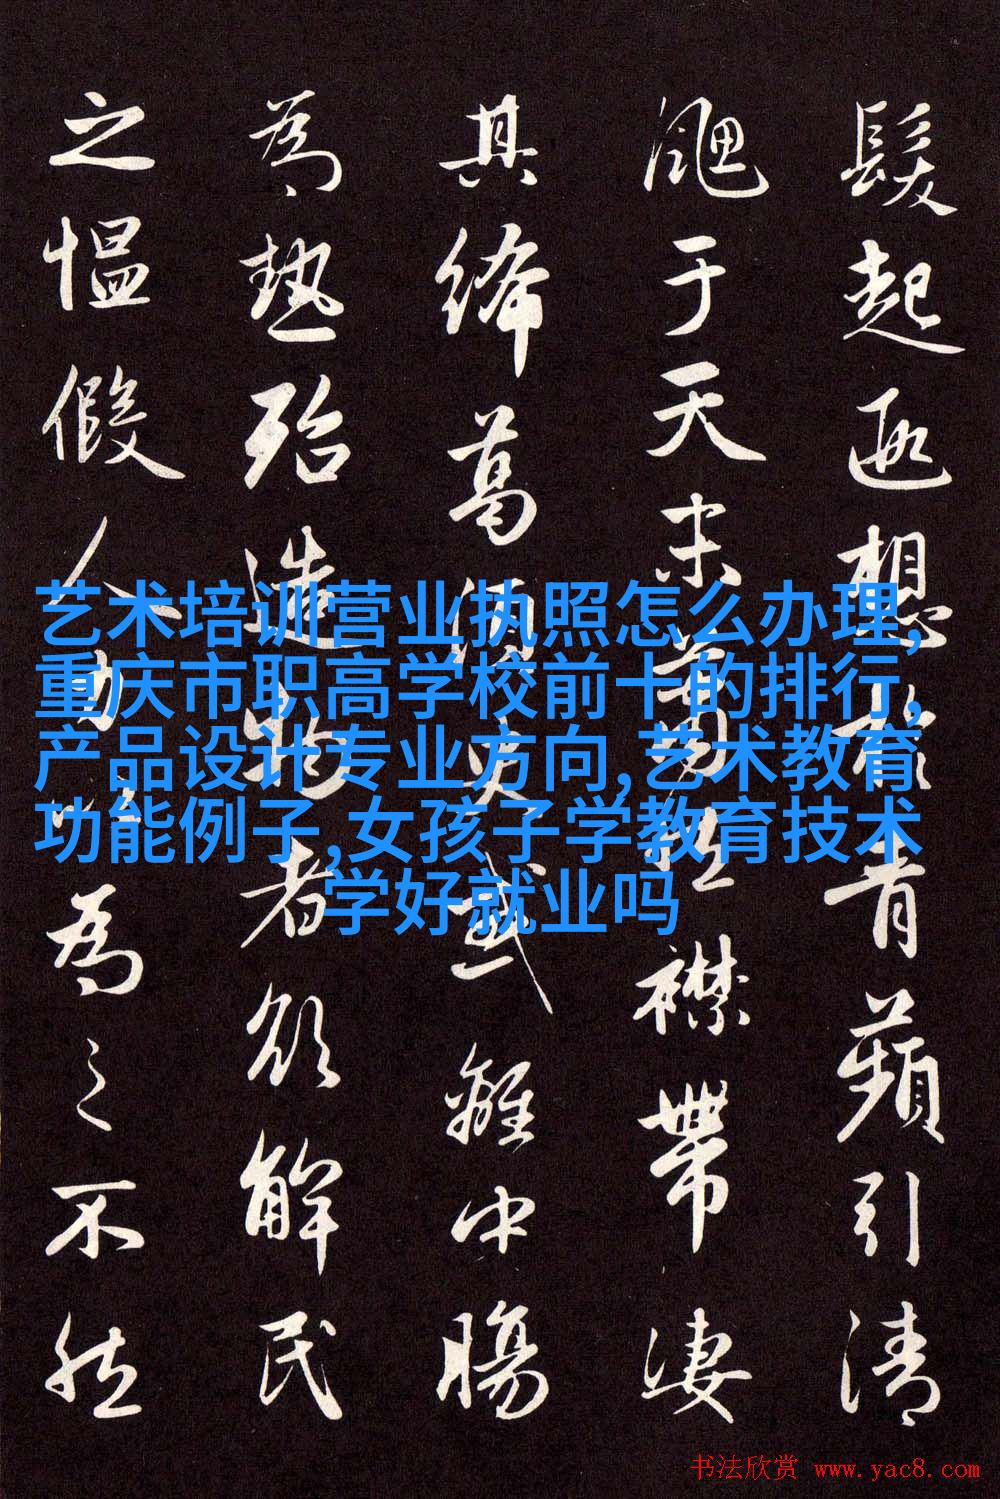 髮起遐想於青蘋引清
颸于天末襟帶凄
其絺葛須臾或離中腸
為熱殆造物者欲解民
之慍假人力以為之不然
艺术培训营业执照怎么办理,
重庆市职高学校前十的排行,
产品设计专业方向,艺术教育
功能例子,女孩子学教育技术
学好就业吗
书法欣赏 www.yac8.com